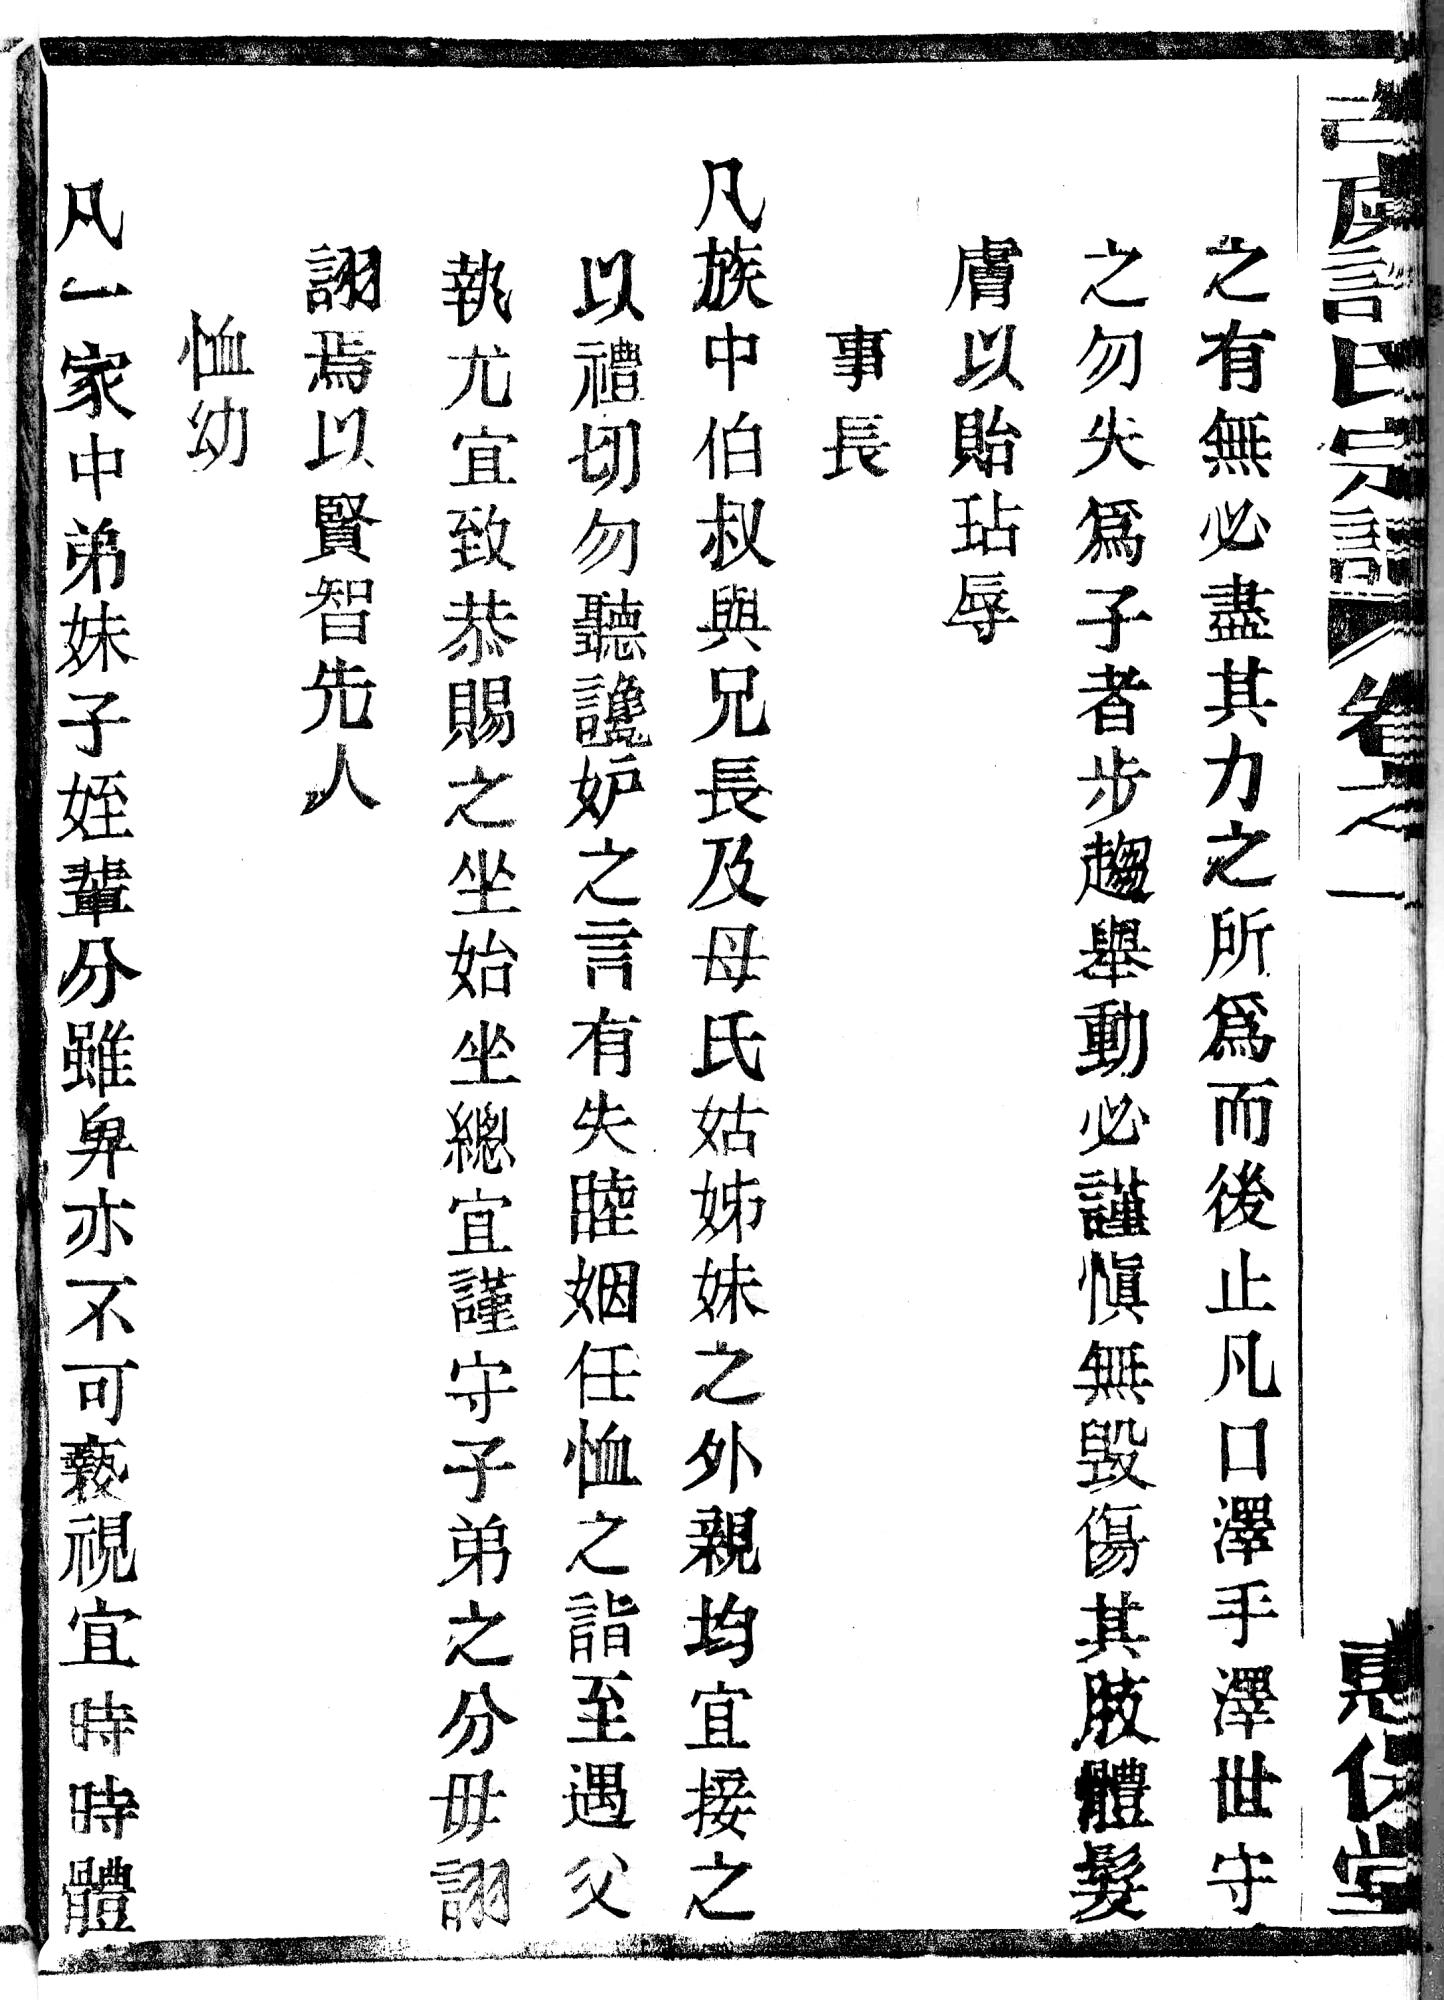 之有無必盡其力之所爲而後止凡口澤手澤世守
之勿失爲子者步趨舉動必謹愼無毀傷其肢體髮
膚以貽玷辱
事長
凡族中伯叔與兄長及母氏姑姊妹之外親均宜接之
以禮切勿聽讒妒之言有失睦姻任恤之誼至遇父
執尤宜致恭賜之坐始坐總宜謹守子弟之分毋詡
詡焉以賢智先人
恤幼
凡一家中弟妹子姪輩分雖卑亦不可褻視宜時時體